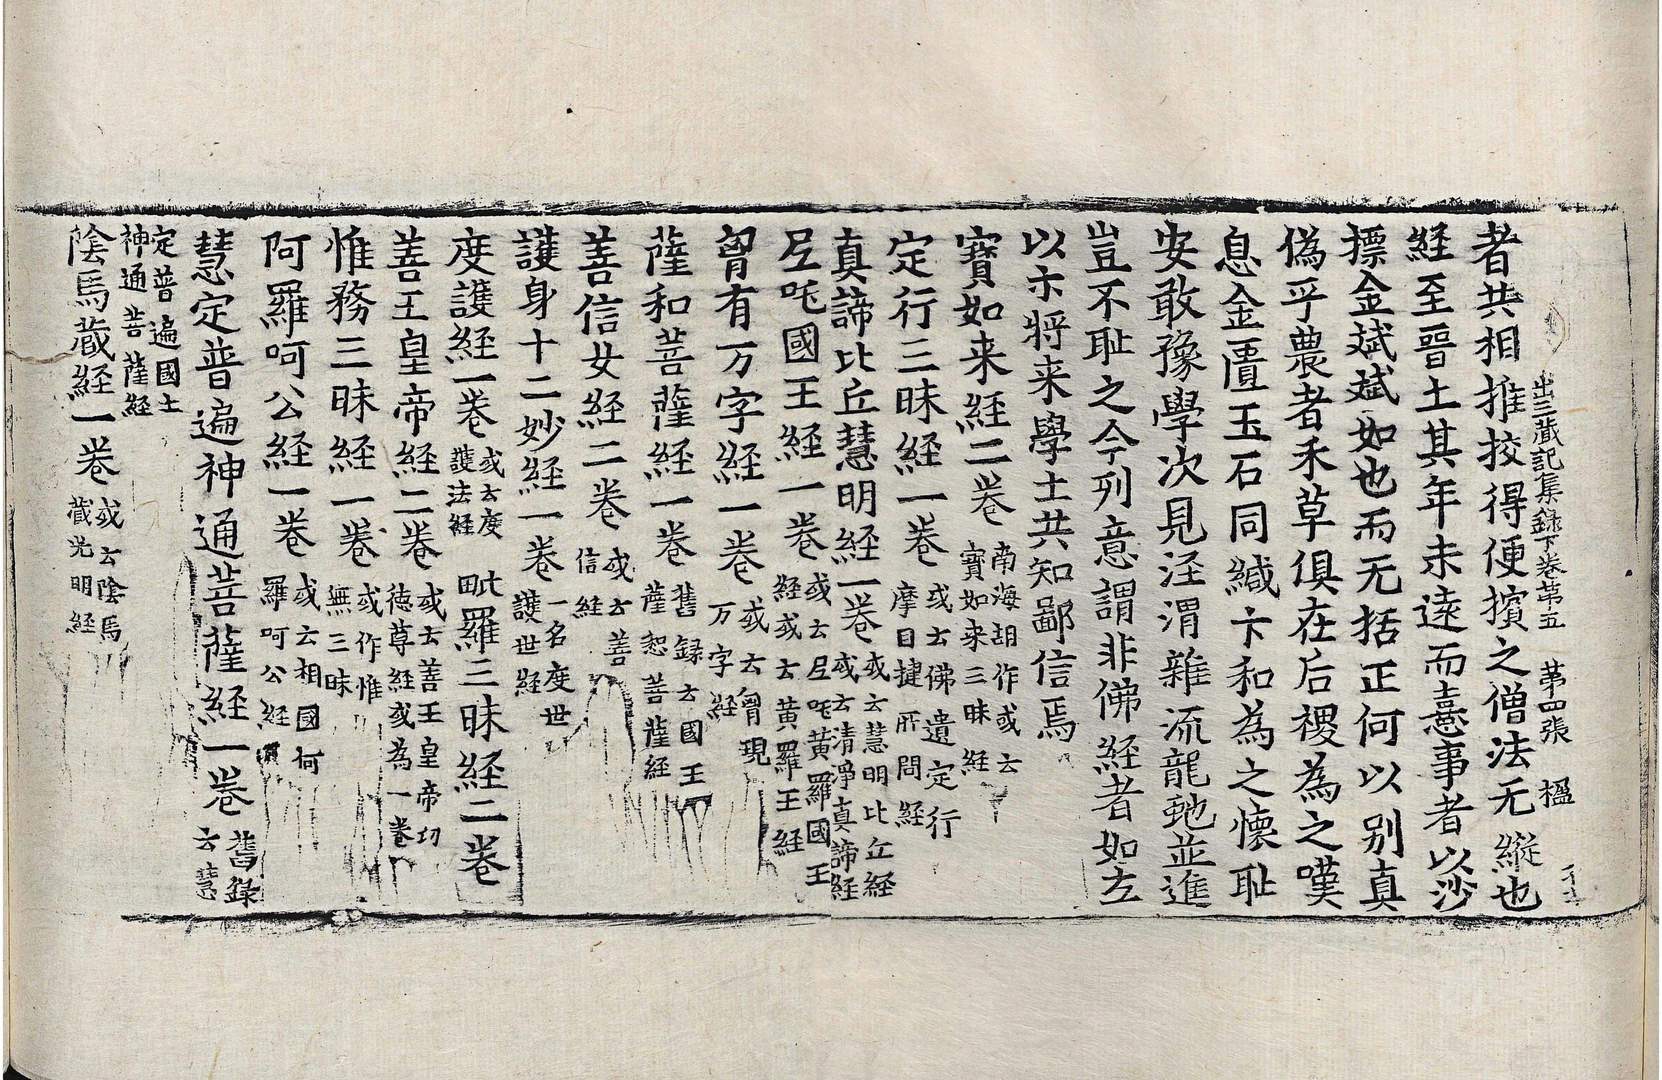 出三蔵記集録下卷苐五 苐四張 楹
者共相推挍得便擯之僧法无縱也
経至晉土其年未遠而憙事者以沙
摽金斌斌如也而无括正何以别真
偽乎農者禾草俱在后稷為之嘆
息金匱玉石同緘卞和為之懐耻
安敢豫學次見涇渭雜流龍虵並進
豈不耻之今列意謂非佛経者如左
以示將来學士共知鄙信焉
寶如来経二卷 南海胡作或云寶如来三昧経
定行三昧経一卷 或云佛遺定行摩目揵所問経
真諦比丘慧明経一卷 或云慧明比丘経或云清淨真諦経
尼吒國王経一卷 或云尼吒黄羅國王経或云黄羅王経
曾有万字経一卷 或云曾現万字経
薩和菩薩経一卷 舊録云國王薩恕菩薩経
善信女経二卷 或云善信経
護身十二妙経一卷 一名度世護世経
度護経一卷 或云度護法経 毗羅三昧経二卷
善王皇帝経二卷 或云善王皇帝功德尊経或為一卷
惟務三昧経一卷 或作惟無三昧
阿羅呵公経一卷 或云相國阿羅呵公経
慧定普遍神通菩薩経一卷 舊録云慧
定普遍國土神通菩薩経
陰馬蔵経一卷 或云陰馬蔵光明経